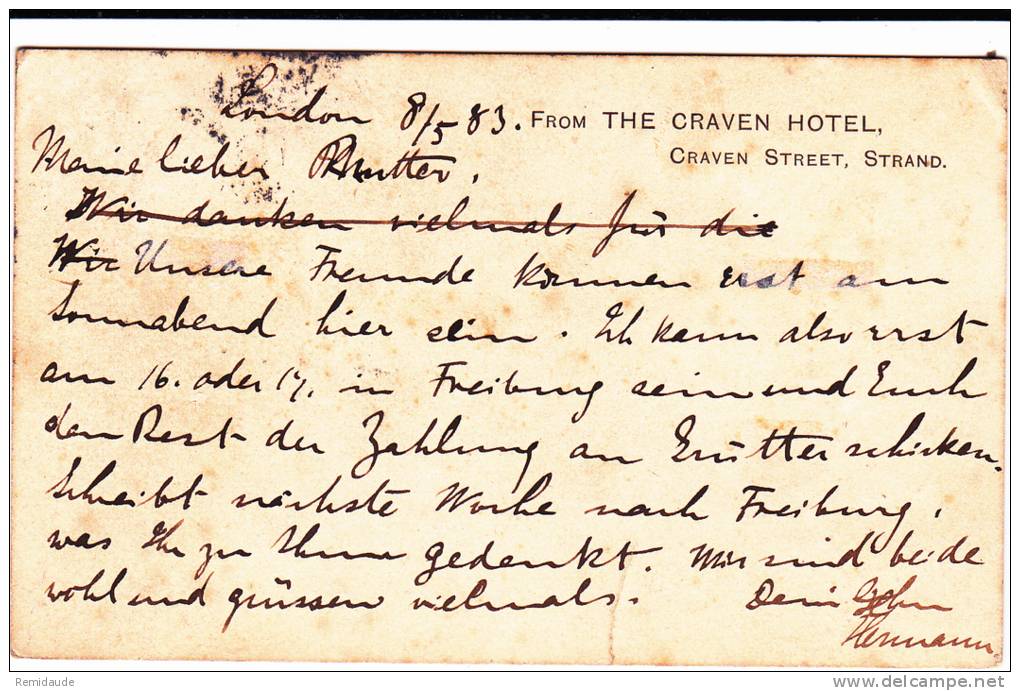 London 8/5 83. FROM THE CRAVEN HOTEL,
CRAVEN STREET, STRAND.
Meine liebe Mutter,
Wir danken vielmals für die
Wir Unsere Freunde können erst am
Sonnabend hier sein. Ich kann also erst
am 16. oder 17. in Freiburg sein und Euch
den Rest der Zahlung an schicken.
Schreibt nächste Woche nach Freiburg,
was Ihr zu thun gedenkt. Wir sind beide
wohl und grüssen vielmals. Dein Sohn
Hermann.
Remidaude
www.delcampe.net